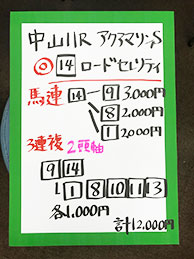 中山11R アクアマリンS
◎ 14 ロードセレリティ
馬連 14 - 9 3.000円
8 2.000円
1 2.000円
3連複 2頭軸
9 14
1 8 10 11 13
各1.000円
計12.000円